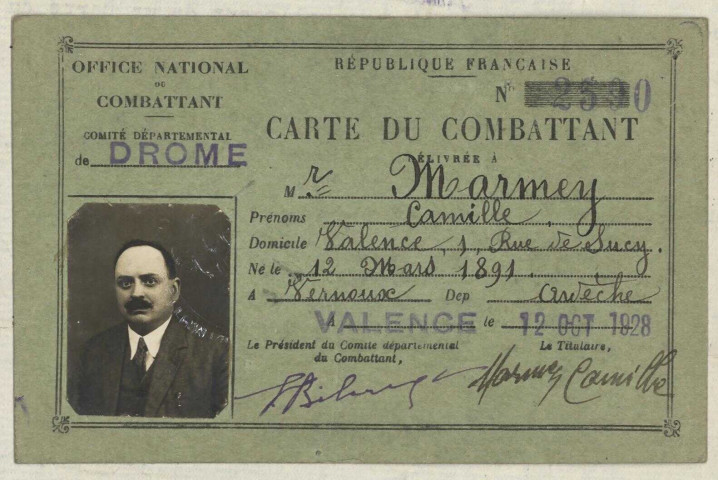 OFFICE NATIONAL
DU
COMBATTANT
COMITÉ DÉPARTEMENTAL
de DROME
RÉPUBLIQUE FRANÇAISE
N° 2530
CARTE DU COMBATTANT
DÉLIVRÉE À
M r Marmey
Prénoms Camille
Domicile Valence, 1, Rue de Sucy.
Né le 12 Mars 1891
A Vernoux Dep Ardèche
A VALENCE le 12 OCT 1928
Le Président du Comité départemental
du Combattant,
Le Titulaire,
Marmey Camille